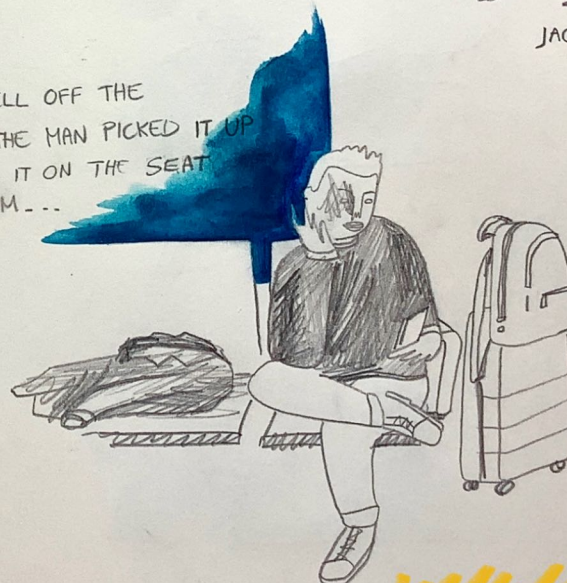 LL OFF THE
THE MAN PICKED IT UP
IT ON THE SEAT
M---
JAC